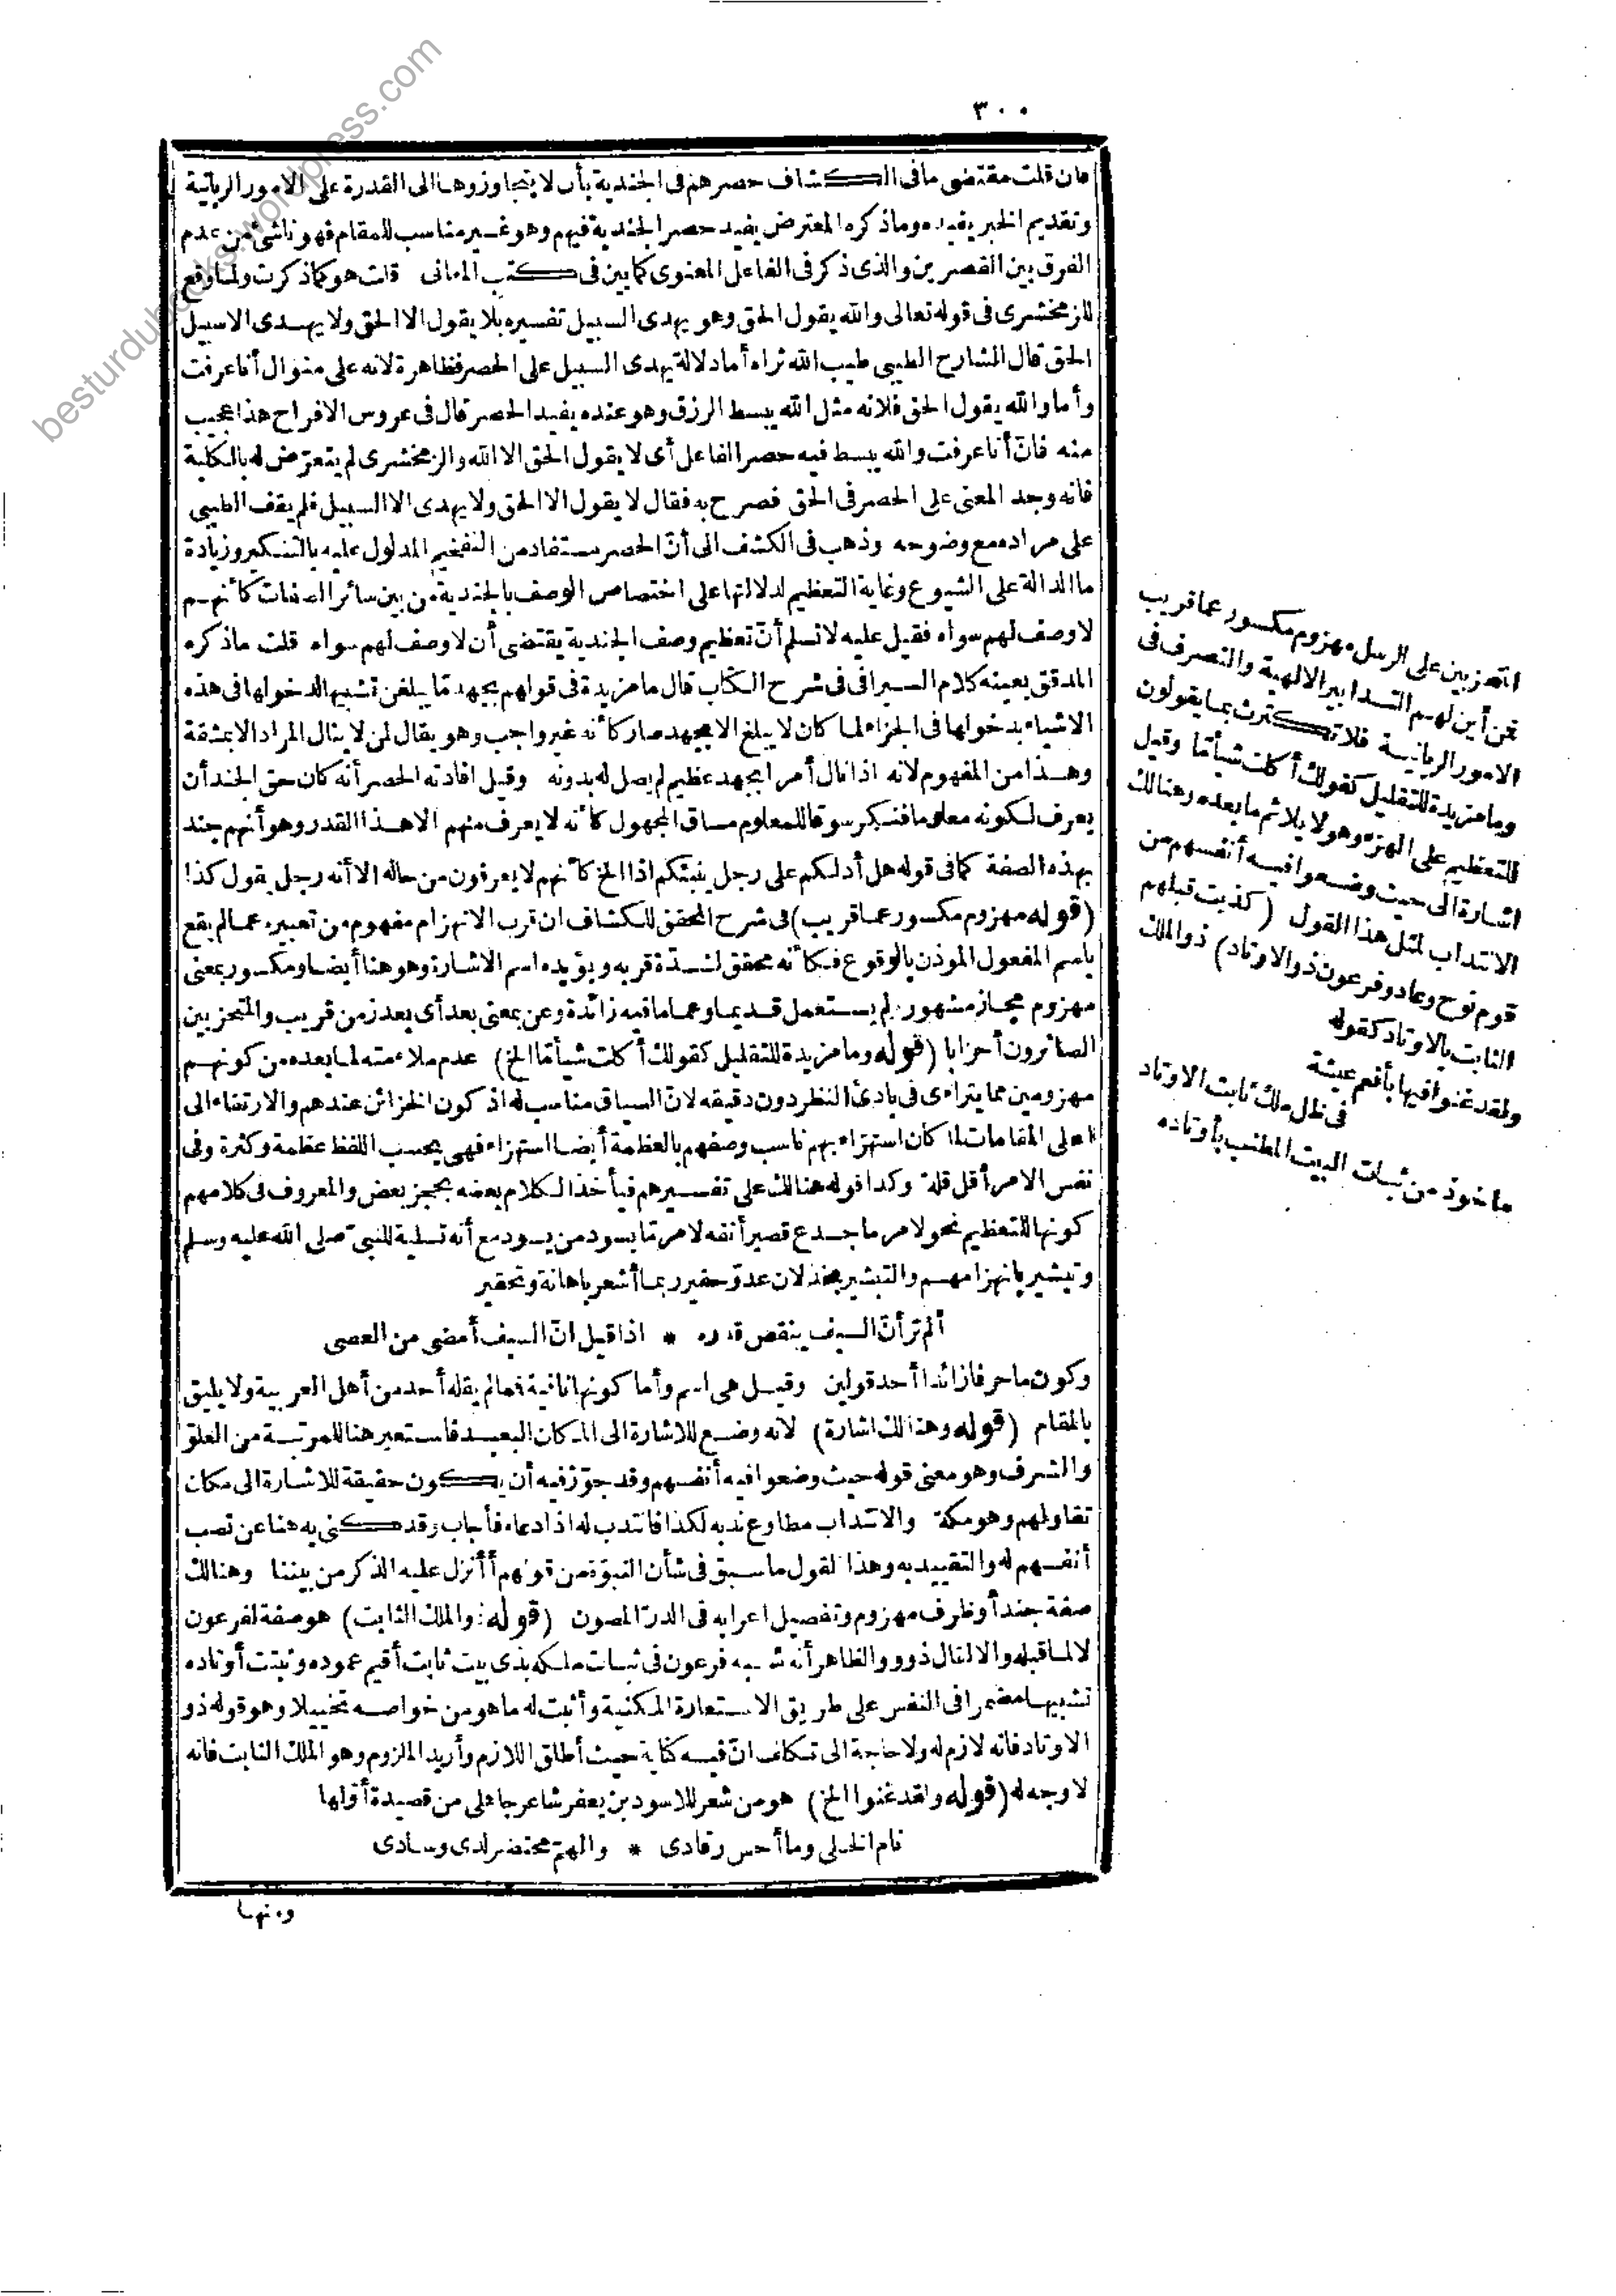 ٣٠٠
فان قلت مقتضى مافى الكشاف حصرهم فى الجندية بأن لا يتجاوزوها الى القدرة على الامور الربانية
وتقديم الخبر يفيده وماذكره المعترض يفيد حصر الجندية فيهم وهو غير مناسب للمقام فهو ناشئ من عدم
الفرق بين القصرين والذى ذكر فى الفاعل المعنوى كما بين فى كتب المعانى قلت هو كما ذكرت ولما وقع
للزمخشرى فى قوله تعالى والله يقول الحق وهو يهدى السبيل تفسيره بلا يقول الا الحق ولا يهدى الا سبيل
الحق قال الشارح الطيبى طيب الله ثراه أما دلالة يهدى السبيل على الحصر فظاهرة لانه على منوال أنا عرفت
وأما والله يقول الحق فلانه مثل الله يبسط الرزق وهو عنده يفيد الحصر قال فى عروس الافراح هذا عجيب
منه فانّ أنا عرفت والله يبسط فيه حصر الفاعل أى لا يقول الحق الا الله والزمخشرى لم يتعرّض له بالكلية
فانه وجد المعنى على الحصر فى الحق فصرح به فقال لا يقول الا الحق ولا يهدى الا السبيل فلم يقف الطيبى
على مراده مع وضوحه وذهب فى الكشف الى أنّ الحصر مستفاد من التفخيم المدلول عليه بالتنكير وزيادة
ما الدالة على الشيوع وغاية التعظيم لدلالتها على اختصاص الوصف بالجندية من بين سائر الصفات كأنهم
لا وصف لهم سواه فقيل عليه لا نسلم أنّ تعظيم وصف الجندية يقتضى أن لا وصف لهم سواه قلت ماذكره
المدقق بعينه كلام السيرافى فى شرح الكتاب قال ما مزيدة فى قولهم بجهد مّا يبلغن تشبيها لدخولها فى هذه
الاشياء بدخولها فى الجزاء لما كان لا يبلغ الا بجهد صار كأنه غير واجب وهو يقال لمن لا ينال المراد الا بمشقة
وهذا من المفهوم لانه اذا نال أمرا بجهد عظيم لم يصل له بدونه وقيل افادته الحصر أنه كان حق الجند أن
يعرف لكونه معلوما فنكر سوقا للمعلوم مساق المجهول كأنه لا يعرف منهم الا هذا القدر وهو أنهم جند
بهذه الصفة كما فى قوله هل أدلكم على رجل ينبئكم اذا الخ كأنهم لا يعرفون من حاله الا أنه رجل يقول كذا
(قوله مهزوم مكسور عما قريب) فى شرح المحقق للكشاف ان قرب الانهزام مفهوم من تعبيره عما لم يقع
باسم المفعول المؤذن بالوقوع فكأنه محقق لشدّة قربه ويؤيده اسم الاشارة وهو هنا أيضا ومكسور بمعنى
مهزوم مجاز مشهور لم يستعمل قديما وعما ما فيه زائدة وعن بمعنى بعد أى بعد زمن قريب والمتحزبين
الصائرون أحزابا (قوله وما مزيدة للتقليل كقولك أكلت شيأ مّا الخ) عدم ملاءمته لما بعده من كونهم
مهزومين مما يتراءى فى بادئ النظر دون دقيقه لانّ السياق مناسب له اذ كون الخزائن عندهم والارتقاء الى
أعلى المقامات لما كان استهزاء بهم ناسب وصفهم بالعظمة أيضا استهزاء فهى بحسب اللفظ عظمة وكثرة وفى
نفس الامر أقل قلة وكذا قوله هنالك على تفسيرهم فيأخذ الكلام بعضه بحجز بعض والمعروف فى كلامهم
كونها للتعظيم نحو لامر ما جدع قصير أنفه لامر مّا يسود من يسود مع أنه تسلية للنبىّ صلى الله عليه وسلم
وتبشير بانهزامهم والتبشير بخذلان عدوّ حقير ربما أشعر باهانة وتحقير
ألم تر أنّ السيف ينقص قدره * اذا قيل انّ السيف أمضى من العصى
وكون ما حرفا زائدا أحد قولين وقيل هى اسم وأما كونها نافية فمما لم يقله أحد من أهل العربية ولا يليق
بالمقام (قوله وهنالك اشارة) لانه وضع للاشارة الى المكان البعيد فاستعير هنا للمرتبة من العلوّ
والشرف وهو معنى قوله حيث وضعوا فيه أنفسهم وقد جوّز فيه أن يكون حقيقة للاشارة الى مكان
تقاولهم وهو مكة والانتداب مطاوع ندبه لكذا فانتدب له اذا دعاه فأجاب وقد كنى به هنا عن نصب
أنفسهم له والتقييد به وهذا القول ما سبق فى شأن النبوّة من قولهم أأنزل عليه الذكر من بيننا وهنالك
صفة جند أو ظرف مهزوم وتفصيل اعرابه فى الدرّ المصون (قوله ذو الملك الثابت) هو صفة لفرعون
لا لما قبله والا لقال ذوو والظاهر أنه شبه فرعون فى ثبات ملكه بذى بيت ثابت أقيم عموده وثبتت أوتاده
تشبيها مضمرا فى النفس على طريق الاستعارة المكنية وأثبت له ما هو من خواصه تخييلا وهو قوله ذو
الاوتاد فانه لازم له ولا حاجة الى تكلف انّ فيه كناية حيث أطلق اللازم وأريد الملزوم وهو الملك الثابت فانه
لا وجه له (قوله ولقد غنوا الخ) هو من شعر للاسود بن يعفر شاعر جاهلى من قصيدة أوّلها
نام الخلى وما أحس رقادى * والهمّ محتضر لدى وسادى
ومنها
المتحزبين على الرسل مهزوم مكسور عما قريب
فمن أين لهم التدابير الالهية والتصرف فى
الامور الربانية فلا تكترث بما يقولون
وما مزيدة للتقليل كقولك أكلت شيأ مّا وقيل
للتعظيم على الهزء وهو لا يلائم ما بعده وهنالك
اشارة الى حيث وضعوا فيه أنفسهم من
الانتداب لمثل هذا القول (كذبت قبلهم
قوم نوح وعاد وفرعون ذو الاوتاد) ذو الملك
الثابت بالاوتاد كقوله
ولقد غنوا فيها بأنعم عيشة
فى ظل ملك ثابت الاوتاد
مأخوذ من ثبات البيت المطنب بأوتاده
besturdubooks.wordpress.com